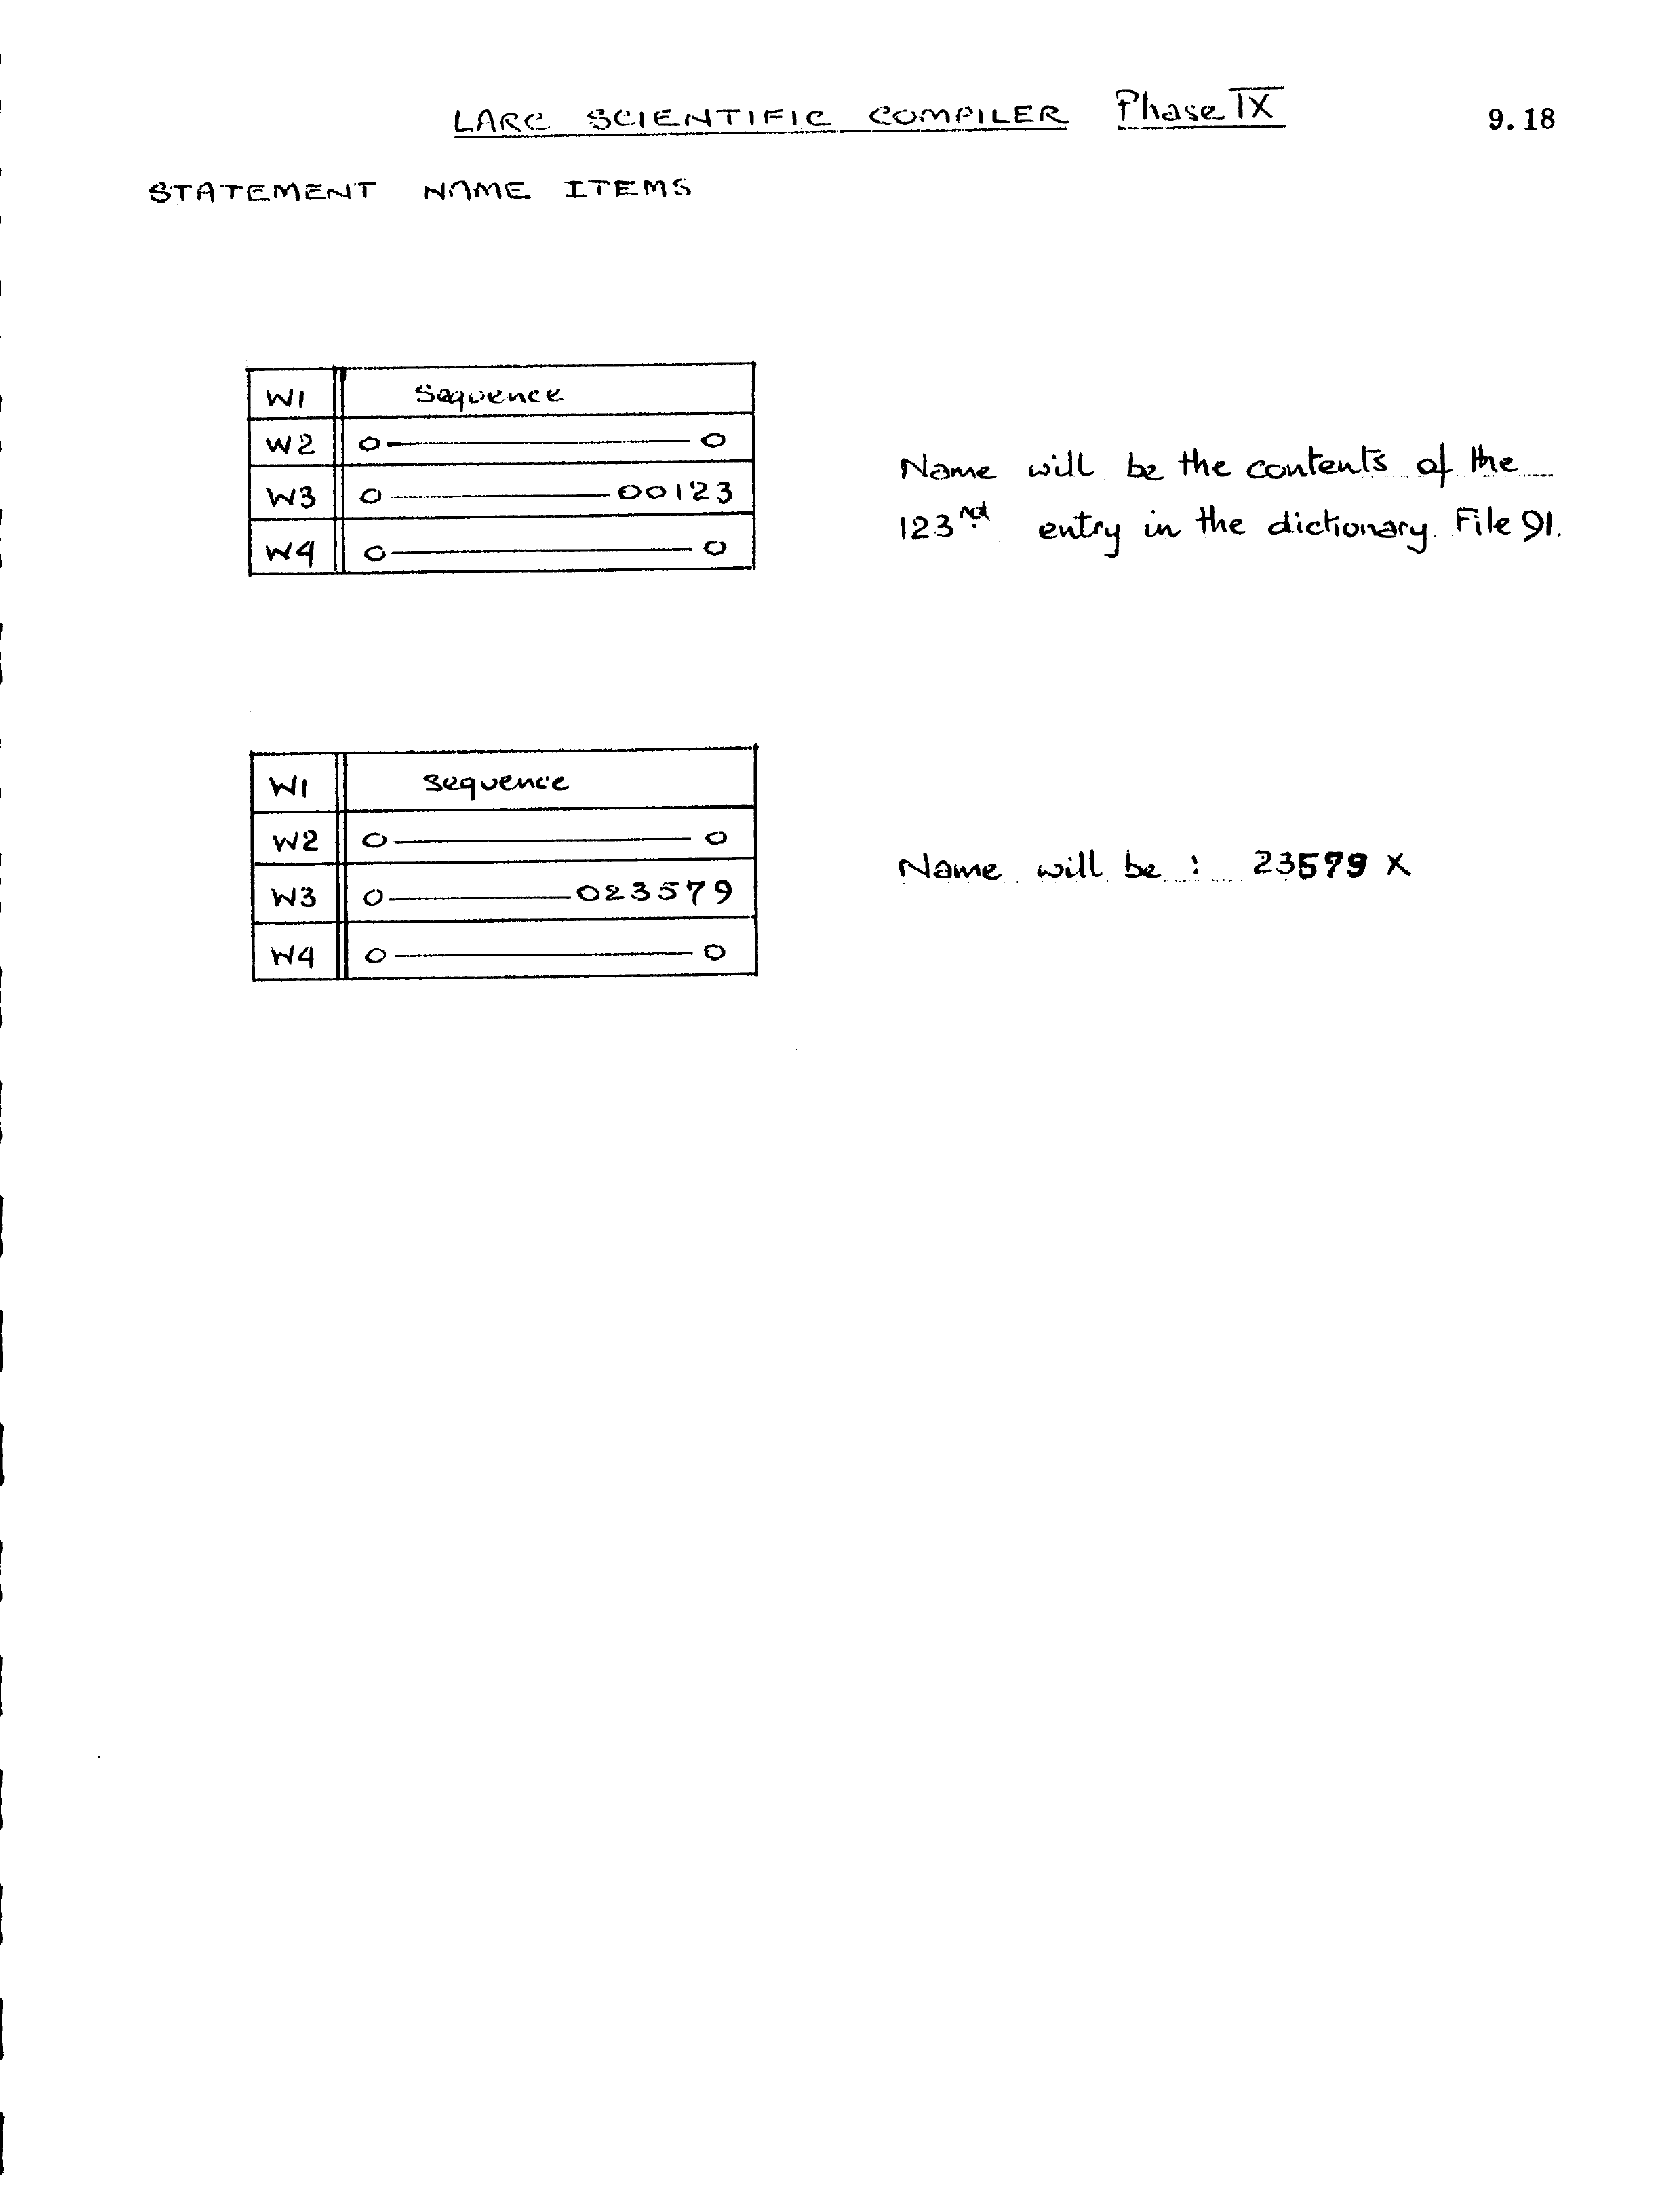 LARC SCIENTIFIC COMPILER Phase IX 9.18
STATEMENT NAME ITEMS
W1 Sequence
W2 0 0
W3 0 00123
W4 0 0
Name will be the contents of the
123rd entry in the dictionary File 91.
W1 Sequence
W2 0 0
W3 0 023579
W4 0 0
Name will be : 23579 X